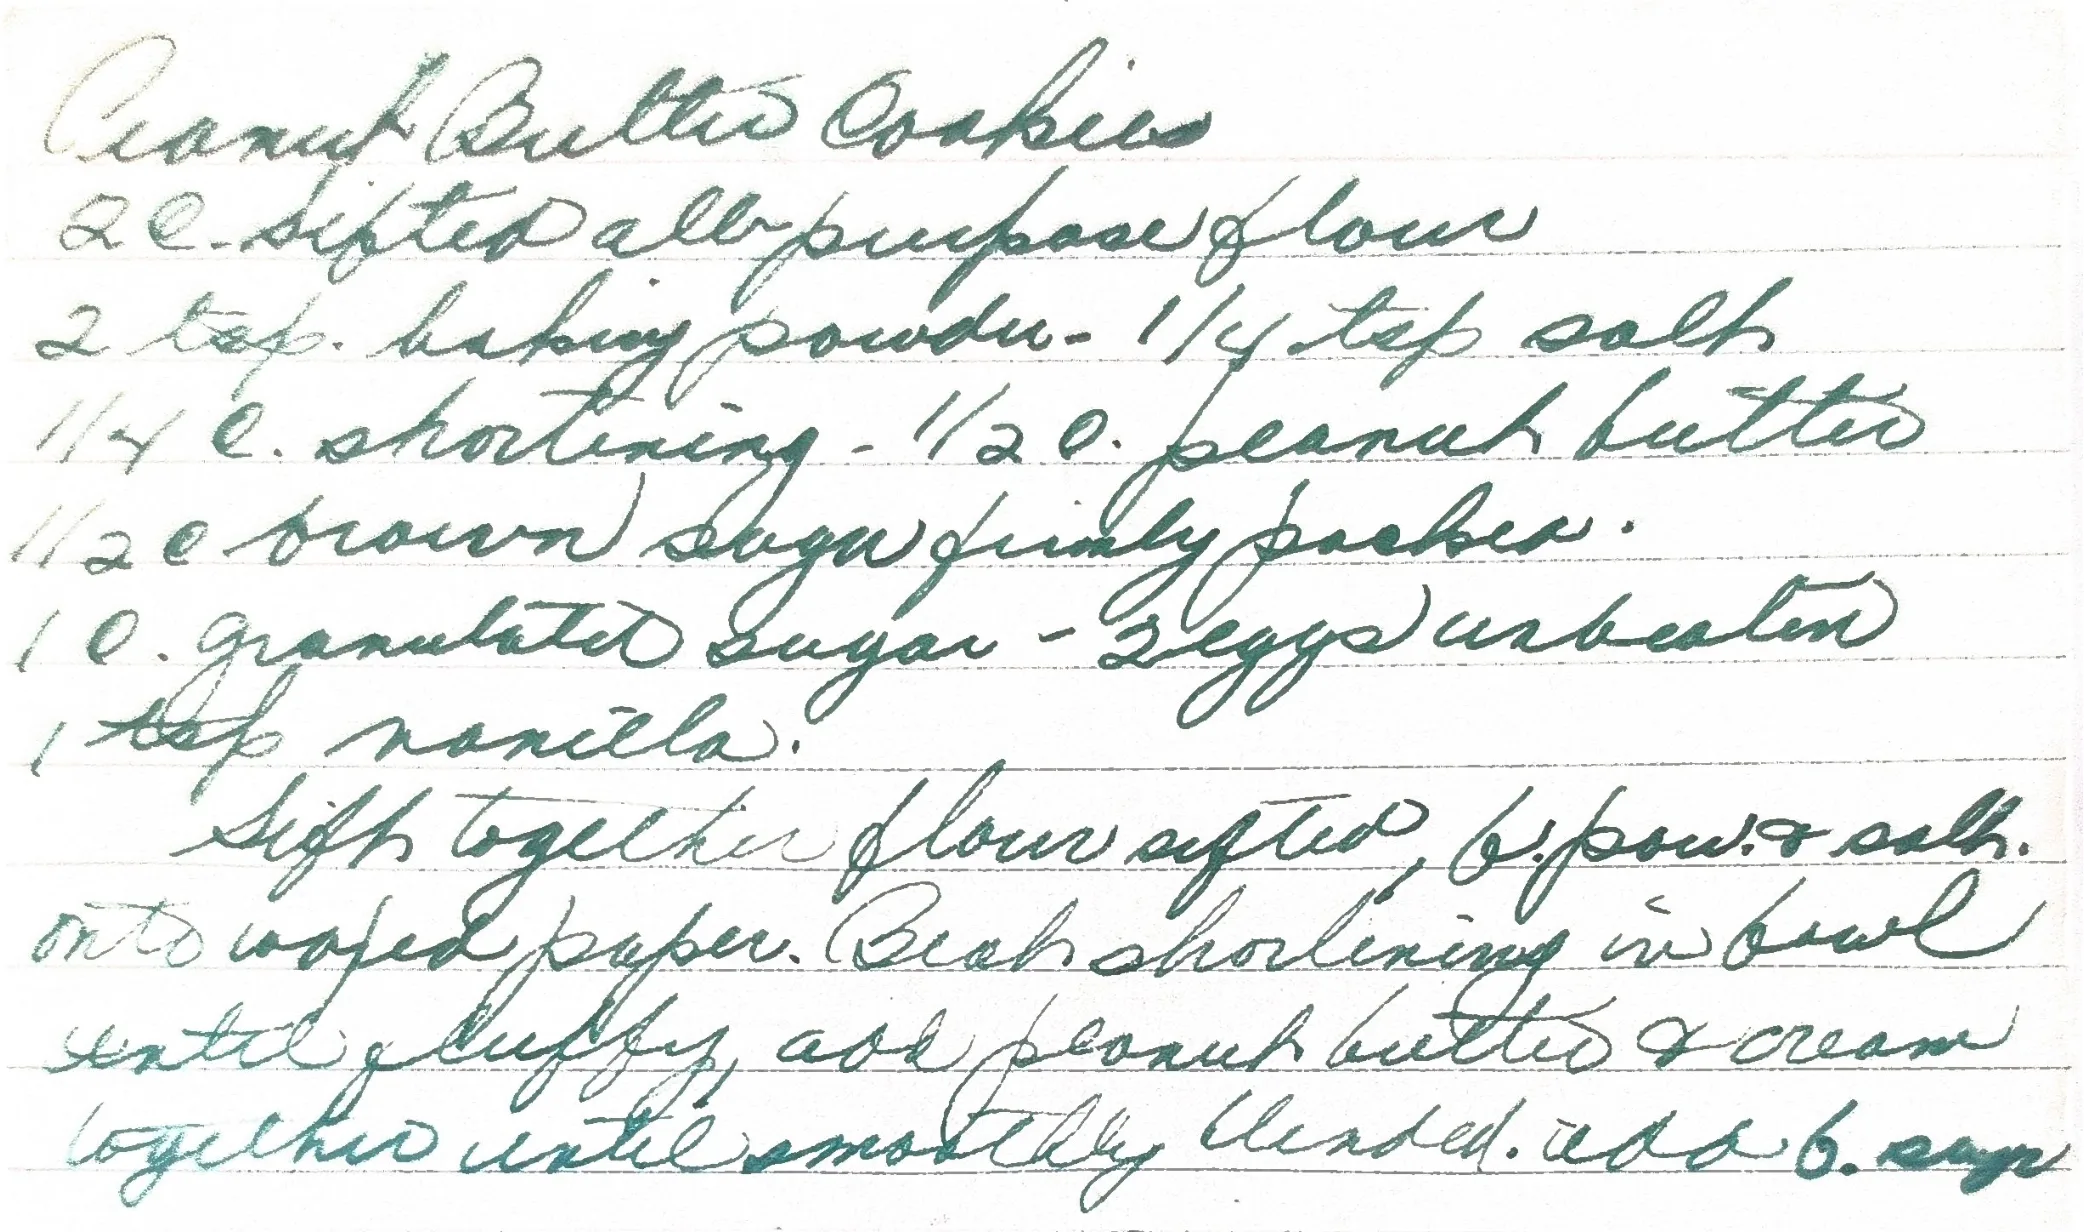 Peanut Butter Cookies
2 C. sifted all purpose flour
2 tsp. baking powder - 1/4 tsp salt
1/4 C. shortening - 1/2 C. peanut butter
1/2 C brown sugar firmly packed.
1 C. granulated sugar - 2 eggs unbeaten
1 tsp vanilla.
Sift together flour sifted, b. pow. & salt.
onto waxed paper. Beat shortening in bowl
until fluffy, add peanut butter & cream
together until smoothly blended. add b. sugar